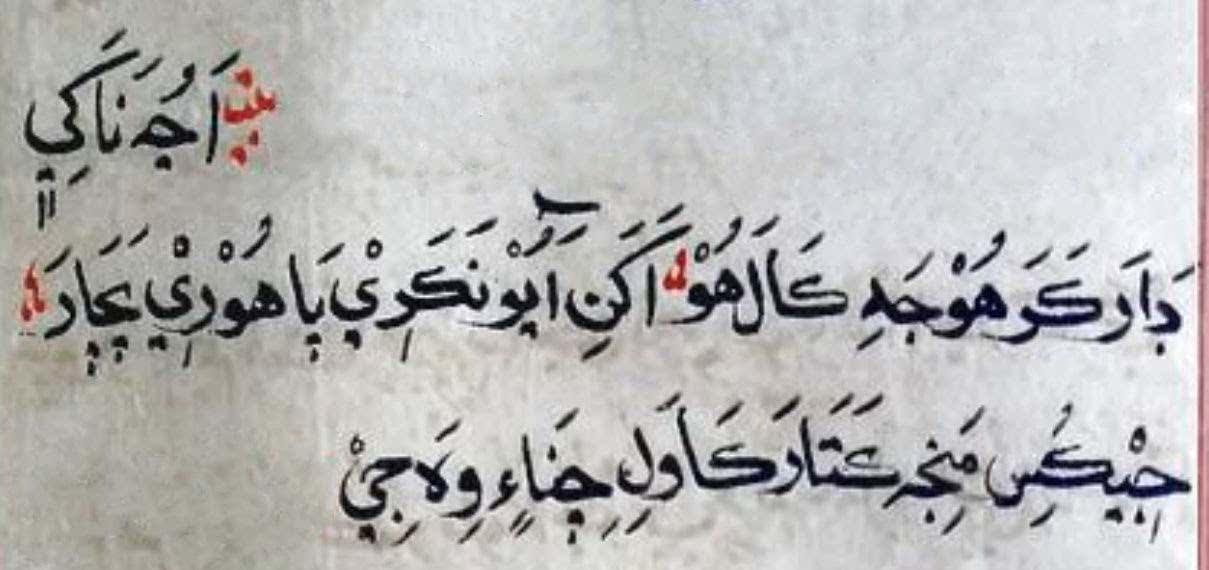 بيت اَجُہ نَاکِي
دَارَ کَرَ هُوْجَہِ کَالَ هُوْ اَکَنِ اَپُوْنکَرِيْ پَاهُوْرِيْ پَچَارَ
جِيْکُسِ مَنجِہ کَتَارَ کَاوَلِ جِنَاءِ وِلَہ جِيْ